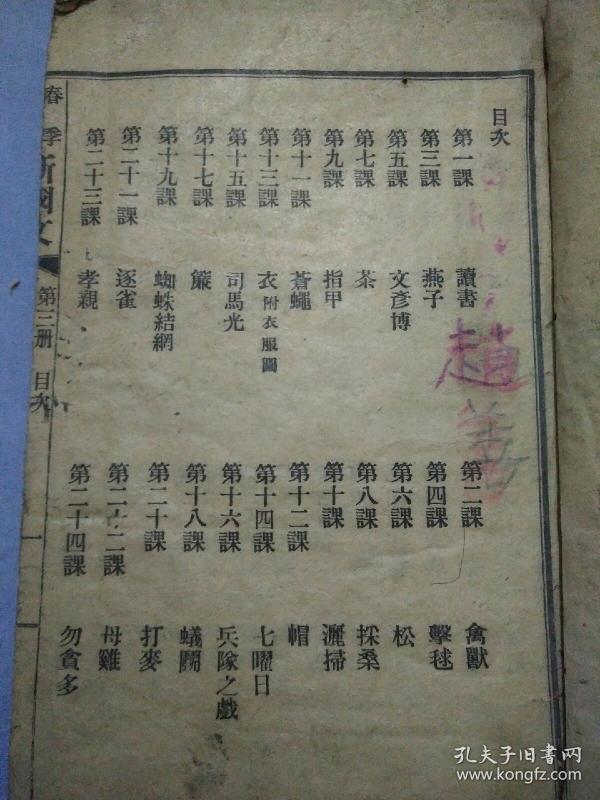 目次
第一課 讀書 第二課 禽獸
第三課 燕子 第四課 擊毬
第五課 文彥博 第六課 松
第七課 茶 第八課 採桑
第九課 指甲 第十課 灑掃
第十一課 蒼蠅 第十二課 帽
第十三課 衣附衣服圖 第十四課 七曜日
第十五課 司馬光 第十六課 兵隊之戲
第十七課 簾 第十八課 蟻鬬
第十九課 蜘蛛結網 第二十課 打麥
第二十一課 逐雀 第二十二課 母雞
第二十三課 孝親 第二十四課 勿貪多
春季新國文 第三册 目次 一
趙
孔夫子旧书网
www.kongfz.com